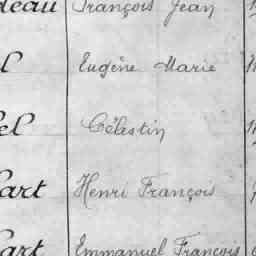 deau François Jean
l Eugène Marie
el Célestin
art Henri François
art Emmanuel François